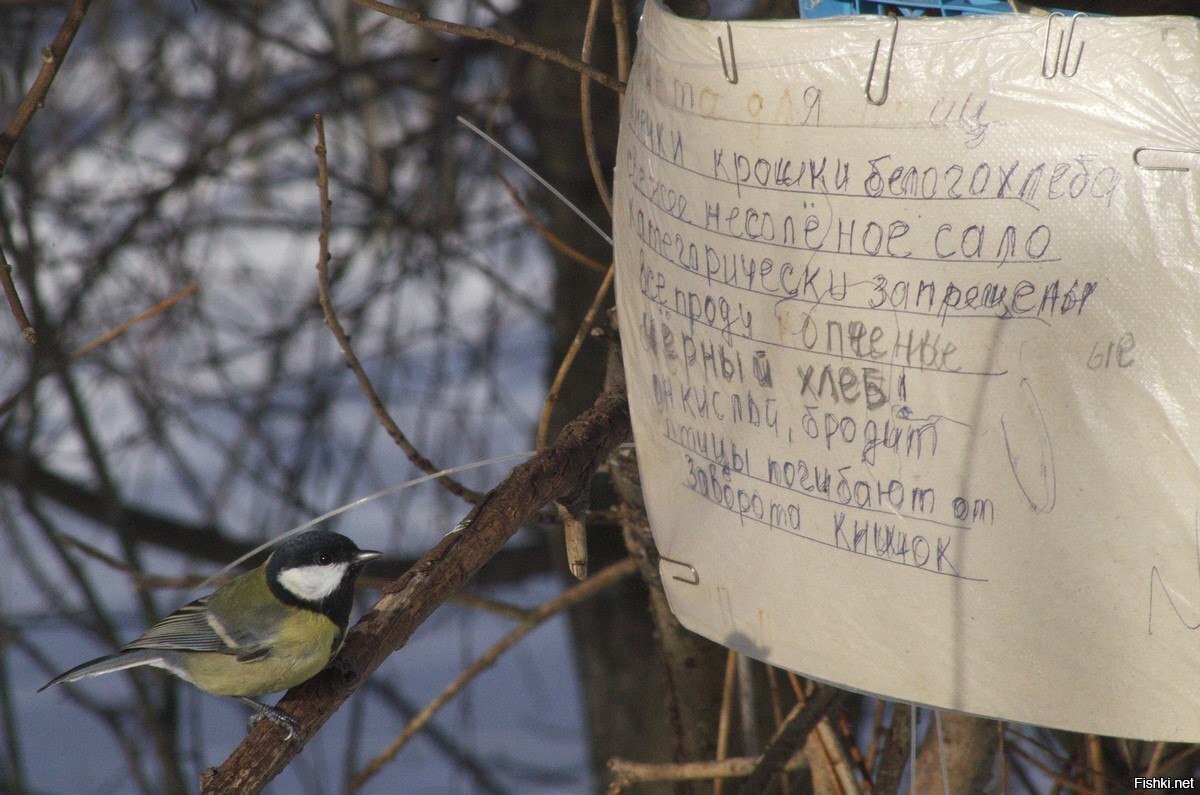 крошки белого хлеба
несолёное сало
категорически запрещены
все проду копчённые
ые
чёрный хлеб!
он кислый, бродит
птицы погибают от
заворота кишок
Fishki.net